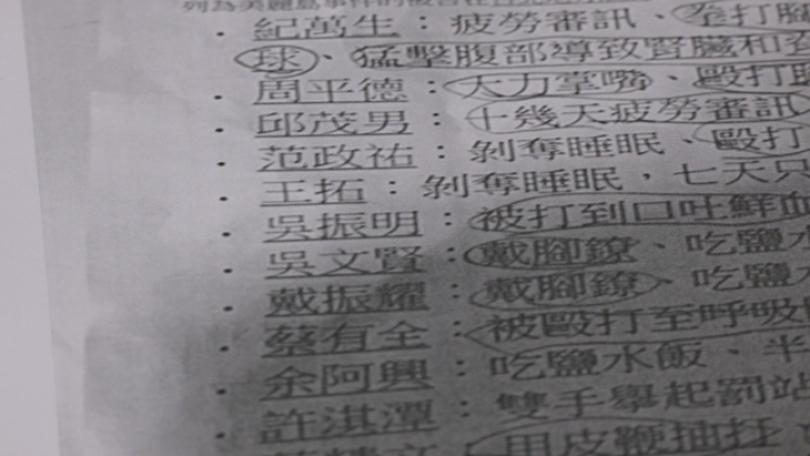 列為美麗島事件的被告在
紀萬生：疲勞審訊、拳打腳
球、猛擊腹部導致腎臟和
周平德：大力掌嘴、毆打
邱茂男：十幾天疲勞審訊
范政祐：剝奪睡眠、毆打
王拓：剝奪睡眠，七天只
吳振明：被打到口吐鮮血
吳文賢：戴腳鐐、吃鹽水
戴振耀：戴腳鐐、吃鹽
蔡有全：被毆打至呼吸
余阿興：吃鹽水飯、半
許淇潭：雙手舉起罰站
用皮鞭抽打